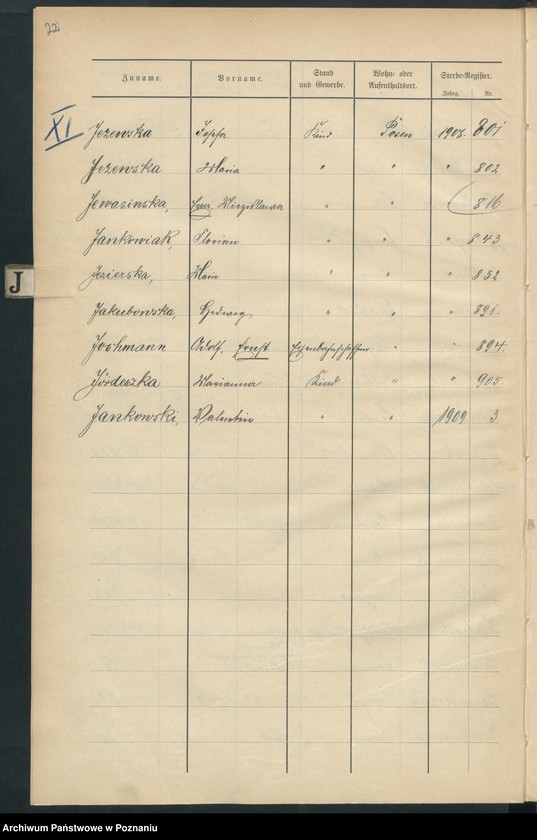 22
Zuname. Vorname. Stand und Gewerbe. Wohn- oder Aufenthaltsort. Sterbe-Register.
Jahrg. Nr.
XI
Jezewska Kind Posen 1908. 801
Jezewska Maria " " " 802
Jewasinska, " " " 816
Jankowiak, Florian " " " 843
Jezierska, " " " 852
Jakubowska, Hedwig, " " " 891.
J
Joehmann Adolf, Ernst " " 894.
Jördeszka Marianna Kind " " 905.
Jankowski, Valentin " " 1909 3
Archiwum Państwowe w Poznaniu